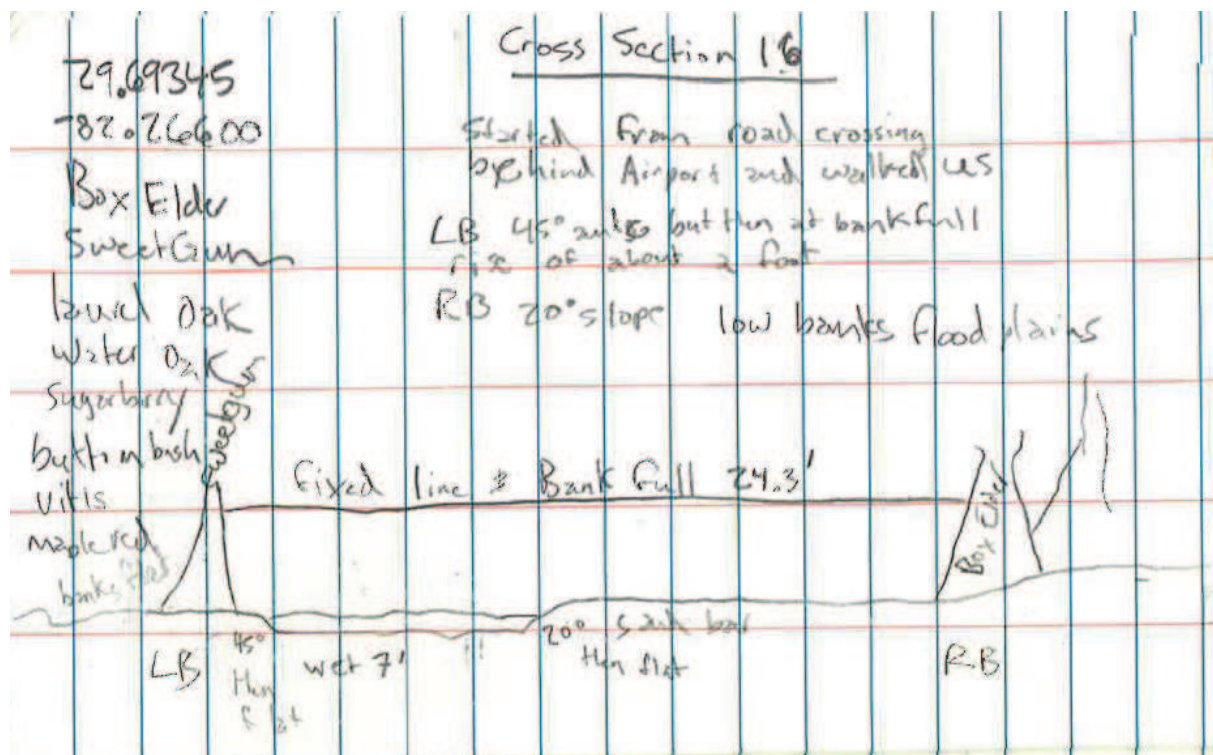 Cross Section 16
29.69345
-82.26600
Box Elder
SweetGum
laurel Oak
water Oak
Sugarberry
button bush
vitis
maple red
banks flat
Started from road crossing
behind Airport and walked US
LB 45° but then at bankfull
rise of about a foot
RB 20° slope low banks flood plains
Sweetgum
fixed line & Bank full 24.3'
Box Elder
LB
45°
then
flat
wet 7'
20° sand bar
then flat
RB